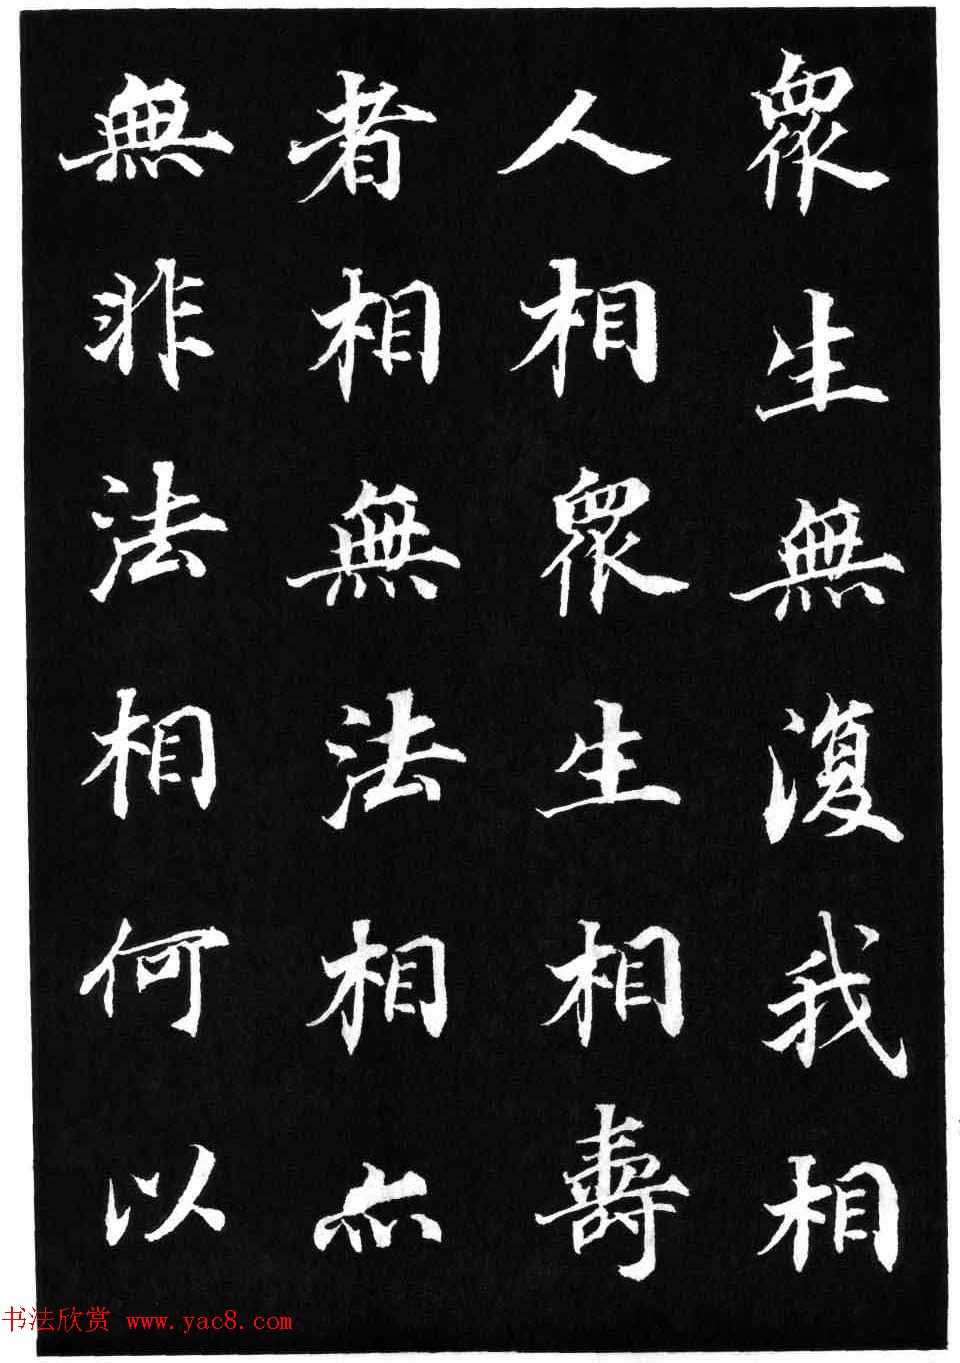 眾生無復我相
人相眾生相壽
者相無法相亦
無非法相何以
书法欣赏 www.yac8.com